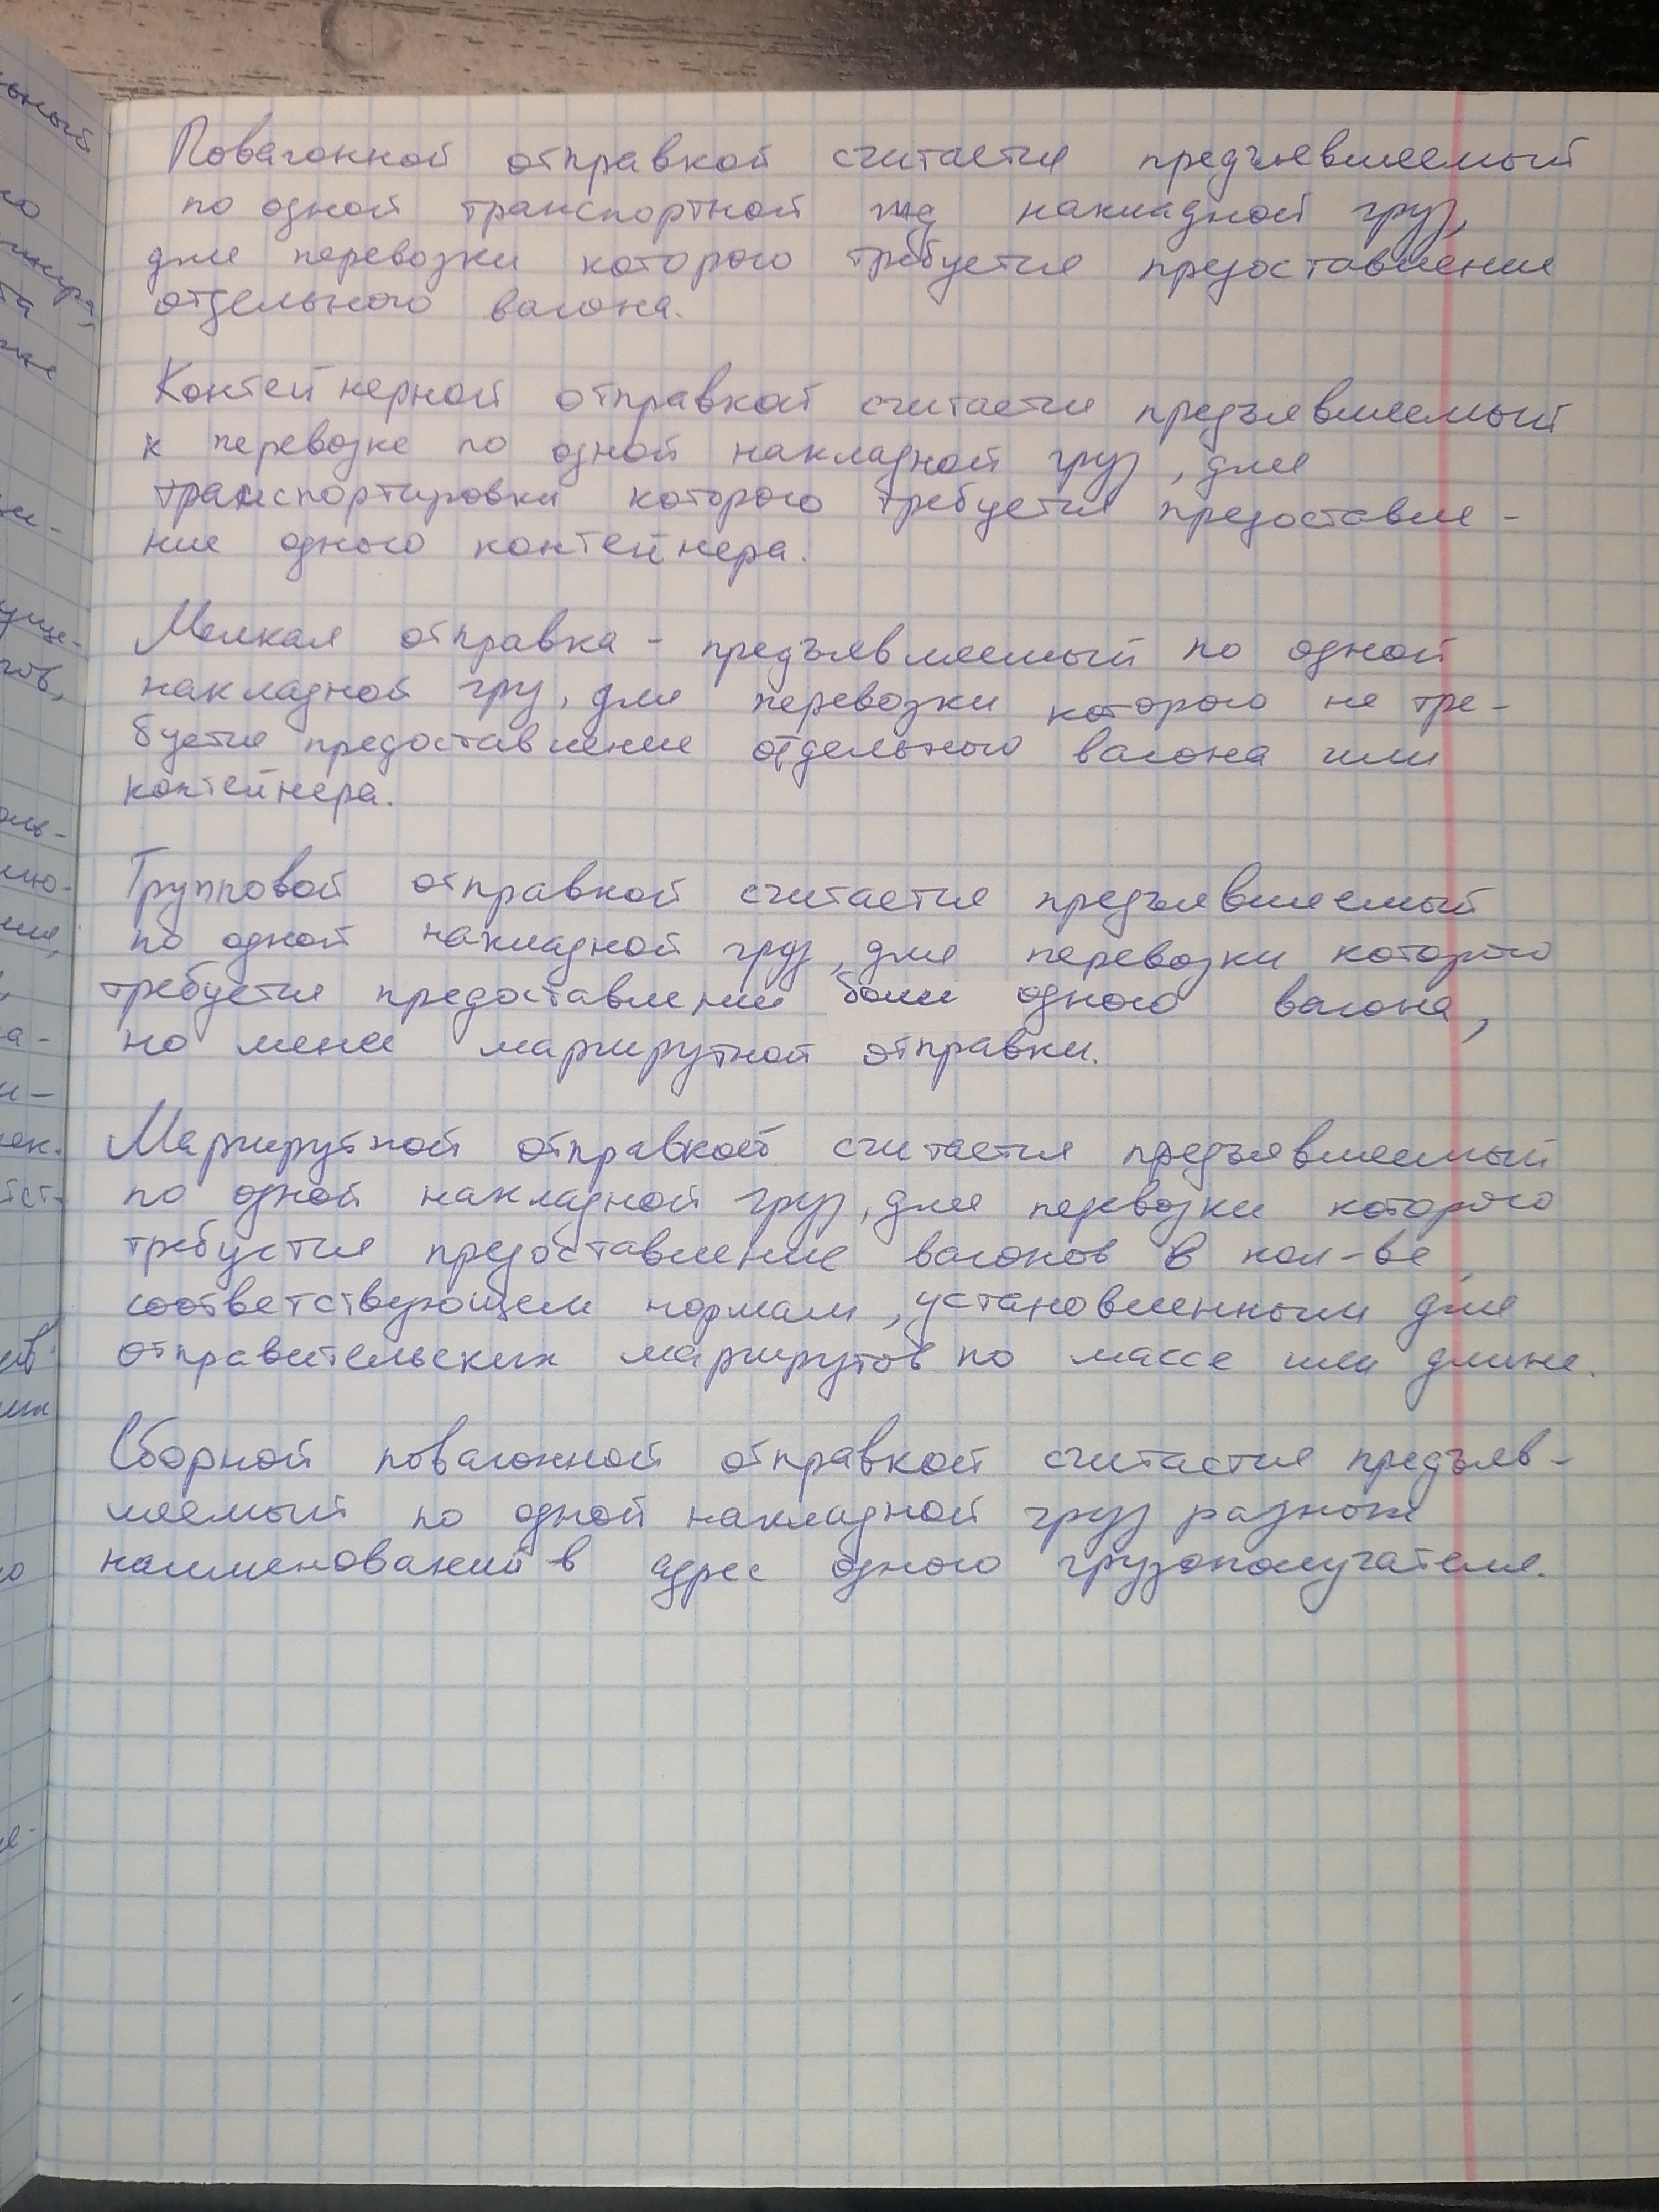 Повагонной отправкой считается предъявляемый
по одной транспортной жд накладной груз,
для перевозки которого требуется предоставление
отдельного вагона.
Контейнерной отправкой считается предъявляемый
к перевозке по одной накладной груз, для
транспортировки которого требуется предоставле-
ние одного контейнера.
Мелкая отправка - предъявляемый по одной
накладной груз, для перевозки которого не тре-
буется предоставление отдельного вагона или
контейнера.
Групповой отправкой считается предъявляемый
по одной накладной груз, для перевозки которого
требуется предоставление более одного вагона,
но менее маршрутной отправки.
Маршрутной отправкой считается предъявляемый
по одной накладной груз, для перевозки которого
требуется предоставление вагонов в кол-ве,
соответствующем нормам, установленным для
отправительских маршрутов по массе или длине.
Сборной повагонной отправкой считается предъяв-
ляемый по одной накладной груз разных
наименований в адрес одного грузополучателя.